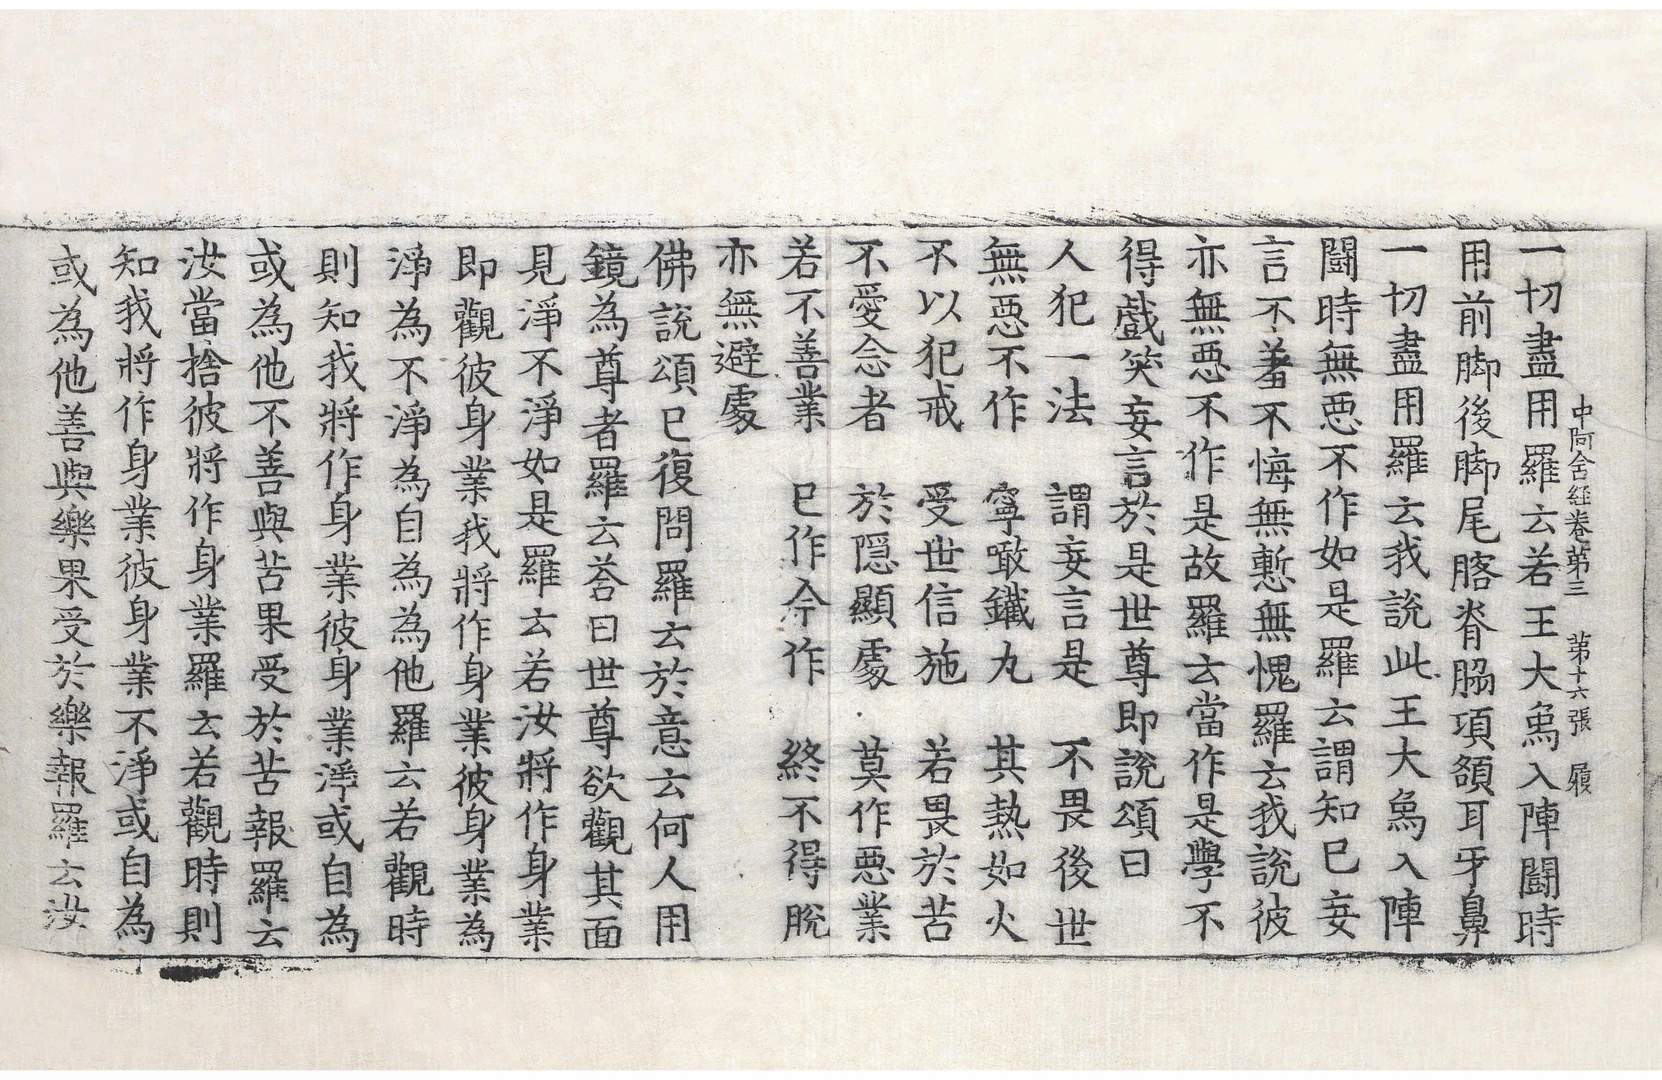 中阿含経卷第三　第十六張　履
一切盡用羅云若王大象入陣鬪時
用前脚後脚尾䯊脊脇項額耳牙鼻
一切盡用羅云我說此王大象入陣
鬪時無惡不作如是羅云謂知已妄
言不羞不悔無慙無愧羅云我說彼
亦無惡不作是故羅云當作是學不
得戲笑妄言於是世尊即說頌曰
人犯一法　謂妄言是　不畏後世
無惡不作　寧噉鐵丸　其熱如火
不以犯戒　受世信施　若畏於苦
不愛念者　於隱顯處　莫作惡業
若不善業　已作今作　終不得脫
亦無避處
佛說頌已復問羅云於意云何人用
鏡為尊者羅云荅曰世尊欲觀其面
見淨不淨如是羅云若汝將作身業
即觀彼身業我將作身業彼身業為
淨為不淨為自為為他羅云若觀時
則知我將作身業彼身業淨或自為
或為他不善與苦果受於苦報羅云
汝當捨彼將作身業羅云若觀時則
知我將作身業彼身業不淨或自為
或為他善與樂果受於樂報羅云汝